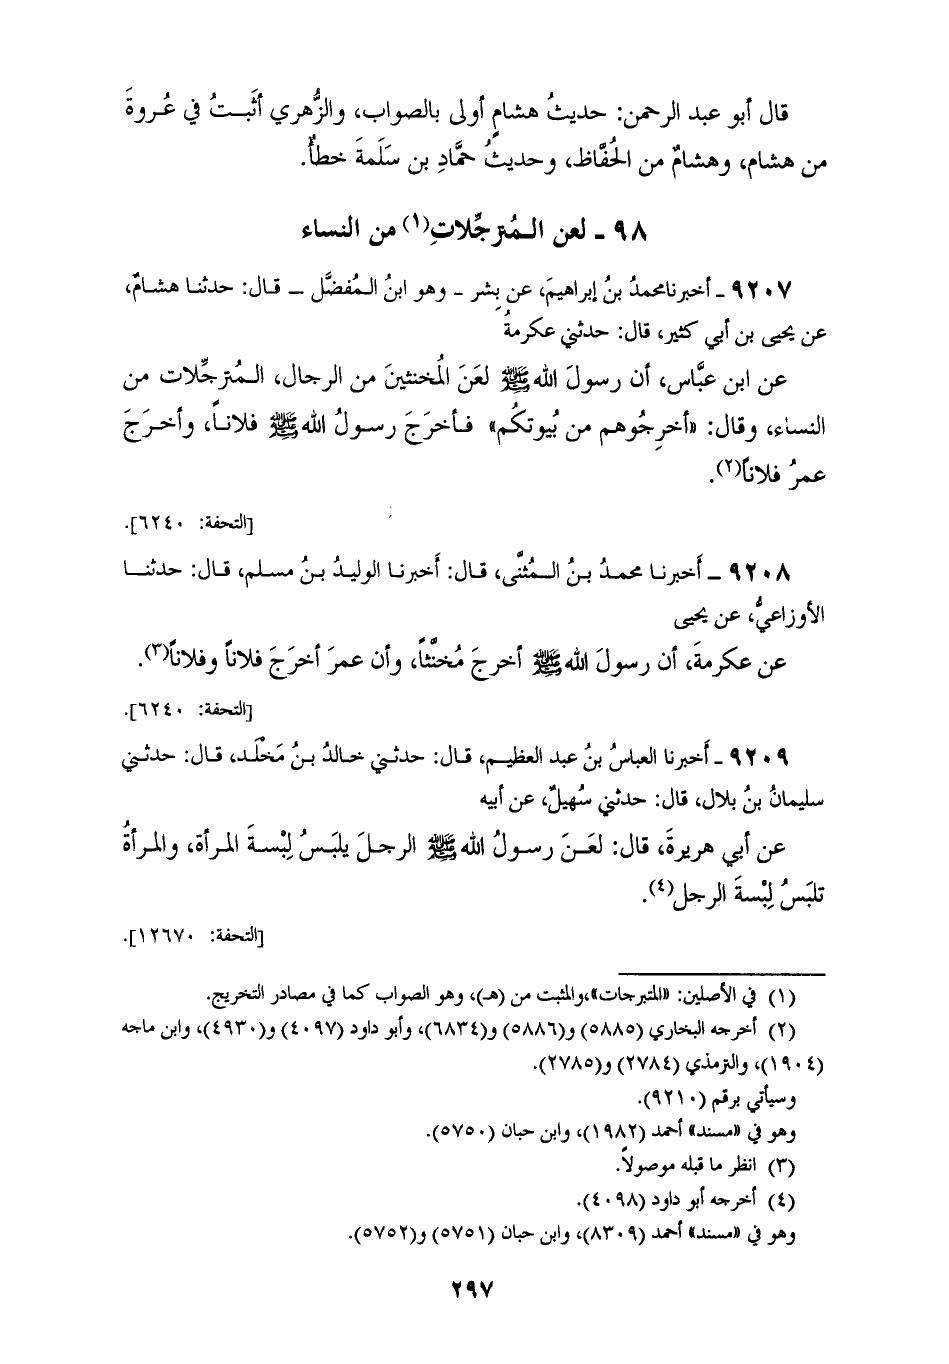 قال أبو عبد الرحمن: حديثُ هشامٍ أولى بالصواب، والزُّهري أثبَـتُ في عُـروةَ
من هشام، وهشامٌ من الحُفَّاظ، وحديثُ حمَّادِ بن سَلَمةَ خطأٌ.
٩٨ ـ لعن المُترجِّلاتِ(١) من النساء
٩٢٠٧ ـ أخبرنا محمدُ بنُ إبراهيمَ، عن بِشر ـ وهو ابنُ المُفضَّل ـ قال: حدثنا هشامٌ،
عن يحيى بن أبي كثير، قال: حدثني عكرمةُ
عن ابن عبَّاس، أن رسولَ الله ﷺ لعَنَ المُخنثينَ من الرجال، المُترجِّلات من
النساء، وقال: «أخرِجُوهم من بُيوتكُم» فأخرَجَ رسولُ الله ﷺ فلاناً، وأخرَجَ
عمرُ فلاناً(٢).
[التحفة: ٦٢٤٠].
٩٢٠٨ ـ أَخبرنا محمدُ بنُ المُثنَّى، قال: أَخبرنا الوليدُ بنُ مسلم، قال: حدثنا
الأوزاعيُّ، عن يحيى
عن عكرمةَ، أن رسولَ الله ﷺ أخرجَ مُخنَّثاً، وأن عمرَ أخرَجَ فلاناً وفلاناً(٣).
[التحفة: ٦٢٤٠].
٩٢٠٩ ـ أَخبرنا العباسُ بنُ عبد العظيم، قال: حدثني خالدُ بنُ مَخْلَد، قال: حدثني
سليمانُ بنُ بلال، قال: حدثني سُهيلٌ، عن أبيه
عن أبي هريرةَ، قال: لعَنَ رسولُ الله ﷺ الرجلَ يلبَسُ لِبْسةَ المرأة، والمرأةُ
تلبَسُ لِبْسةَ الرجل(٤).
[التحفة: ١٢٦٧٠].
(١) في الأصلين: «المتبرجات»، والمثبت من (هـ)، وهو الصواب كما في مصادر التخريج.
(٢) أخرجه البخاري (٥٨٨٥) و(٥٨٨٦) و(٦٨٣٤)، وأبو داود (٤٠٩٧) و(٤٩٣٠)، وابن ماجه
(١٩٠٤)، والترمذي (٢٧٨٤) و(٢٧٨٥).
وسيأتي برقم (٩٢١٠).
وهو في «مسند» أحمد (١٩٨٢)، وابن حبان (٥٧٥٠).
(٣) انظر ما قبله موصولاً.
(٤) أخرجه أبو داود (٤٠٩٨).
وهو في «مسند» أحمد (٨٣٠٩)، وابن حبان (٥٧٥١) و(٥٧٥٢).
٢٩٧